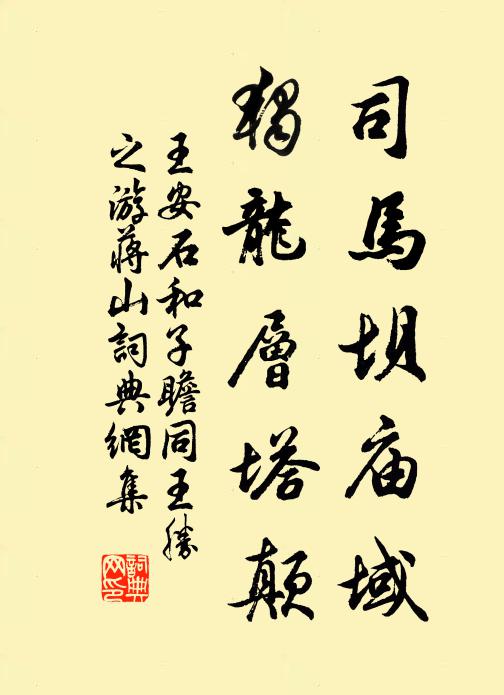 司馬坝庙域
獨龍層塔顛
王安石和子瞻同王勝
之游蔣山詞典網集
詞典網印